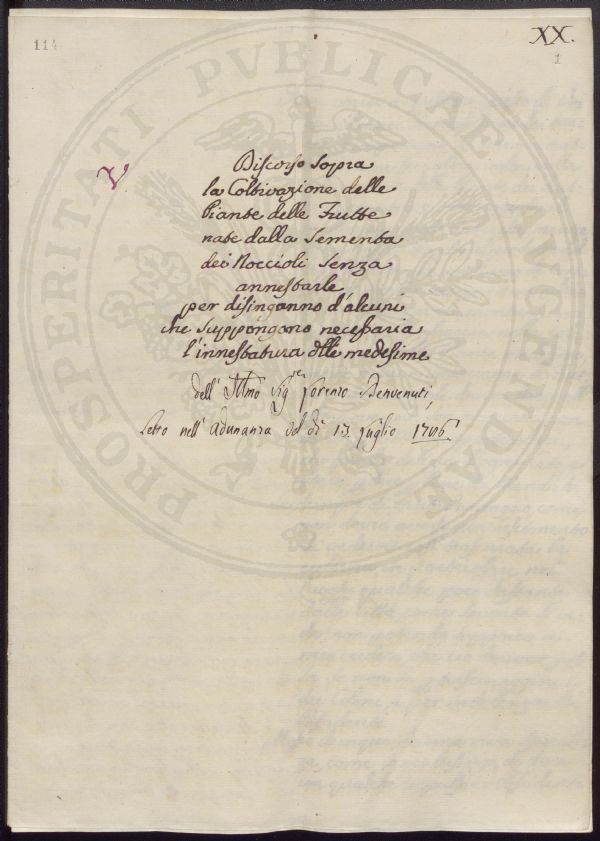 114
XX.
1
PROSPERITATI PVBLICAE AVGENDAE
V
Discorso sopra
la Coltivazione delle
Piante delle Frutte
nate dalla Sementa
dei Noccioli Senza
annestarle
per disinganno d'alcuni
che Suppongono necessaria
l'innestatura delle medesime
dell' Illmo Sigre Lorenzo Benvenuti,
Letto nell' Adunanza del dì 13. Luglio